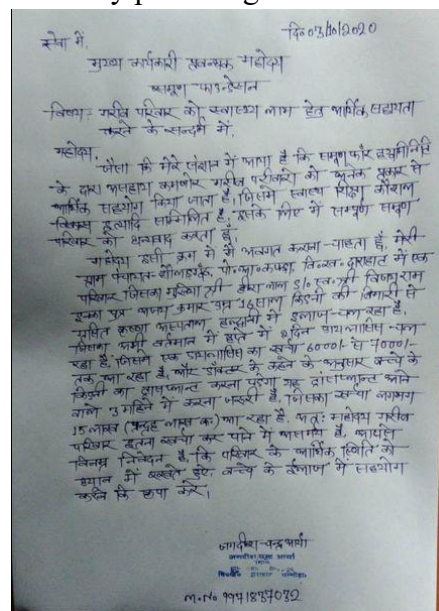 दि० 03/10/2020
सेवा में,
मुख्य कार्यकारी प्रबन्धक महोदय
सम्पूण फाउन्डेसान
विषय- गरीब परिवार को स्वास्थ्य लाभ हेतु आर्थिक सहायता
करने के सन्दर्भ में,
महोदय,
जैसा कि मेरे संज्ञान में आया है कि समूण फॉर
के द्वारा असहाय कमजोर गरीब परिवारों को अनेक प्रकार से
आर्थिक सहयोग किया जाता है, जिसमें स्वास्थ्य शिक्षा कौशल
विकास इत्यादि सम्मिलित है, इसके लिए मैं सम्पूर्ण समूण
परिवार को धन्यवाद करता हूँ,
महोदय इसी क्रम में मैं अवगत कराना चाहता हूँ, मेरी
ग्राम पंचायत पो.आ. वि.ख. द्वाराहाट में एक
परिवार जिसका मुखिया श्री लाल S/o स्व. श्री विजयराम
इनका पुत्र कुमार उम्र 16 साल किडनी की बिमारी से
अस्पताल, हल्द्वानी में इलाज चल रहा है,
जिसका अभी वर्तमान में हप्ते में 2 दिन डायलासिस चल
रहा है, जिसमें एक डायलासिस का खर्चा 6000/- से 7000/-
तक आ रहा है, और डॉक्टर के कहने के अनुसार बच्चे के
किडनी का ट्रांसप्लान्ट करना पड़ेगा यह ट्रांसप्लान्ट आने
वाले 3 महिने में करना जरुरी है, जिसका खर्चा लगभग
15 लाख (पन्द्रह लाख रू) आ रहा है, अत: महोदय गरीब
परिवार इतना खर्चा कर पाने में असमर्थ है,
विनम्र निवेदन है, कि परिवार के आर्थिक स्थिति को
ध्यान में रखते हुए, बच्चे के ईलाज में सहयोग
करने कि कृपा करें।
जगदीश चन्द्र आर्या
M.No 9941837032